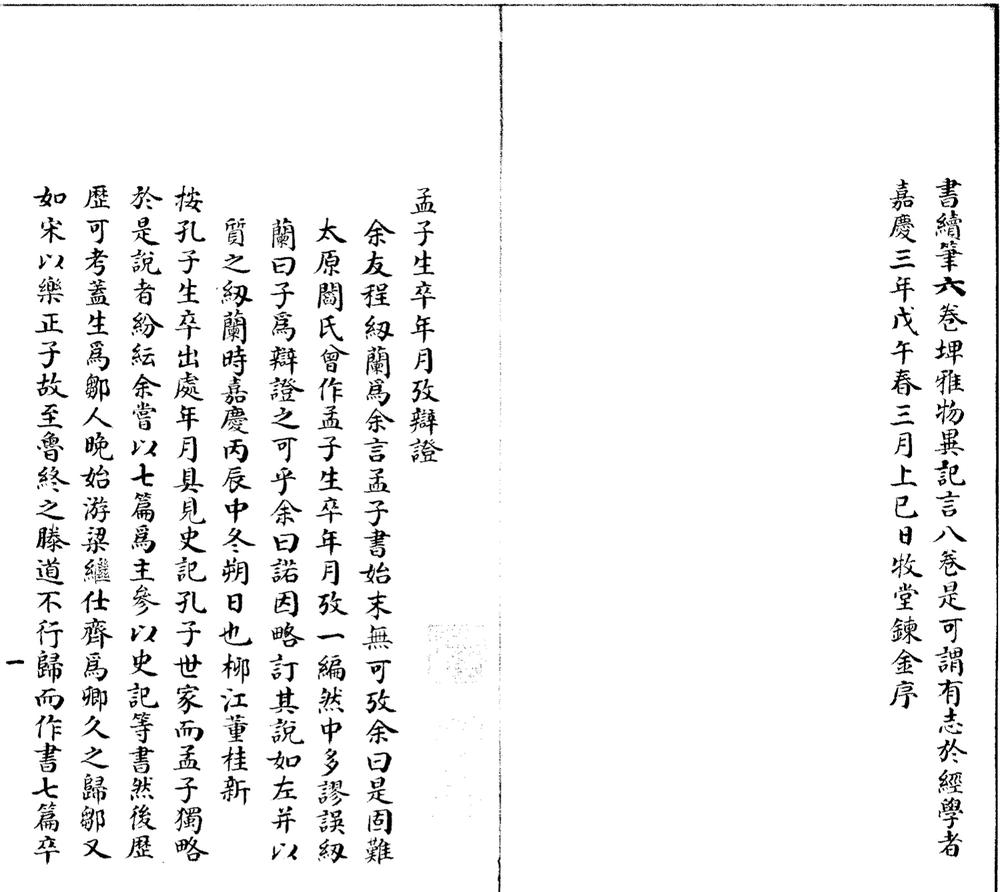 書續筆六卷埤雅物異記言八卷是可謂有志於經學者
嘉慶三年戊午春三月上巳日牧堂鍊金序
孟子生卒年月攷辯證
余友程紉蘭爲余言孟子書始末無可攷余曰是固難
太原閻氏曾作孟子生卒年月攷一編然中多謬誤紉
蘭曰子爲辯證之可乎余曰諾因略訂其說如左并以
質之紉蘭時嘉慶丙辰中冬朔日也柳江董桂新
按孔子生卒出處年月具見史記孔子世家而孟子獨略
於是說者紛紜余嘗以七篇爲主參以史記等書然後歷
歷可考蓋生爲鄒人晩始游梁繼仕齊爲卿久之歸鄒又
如宋以樂正子故至魯終之滕道不行歸而作書七篇卒
一